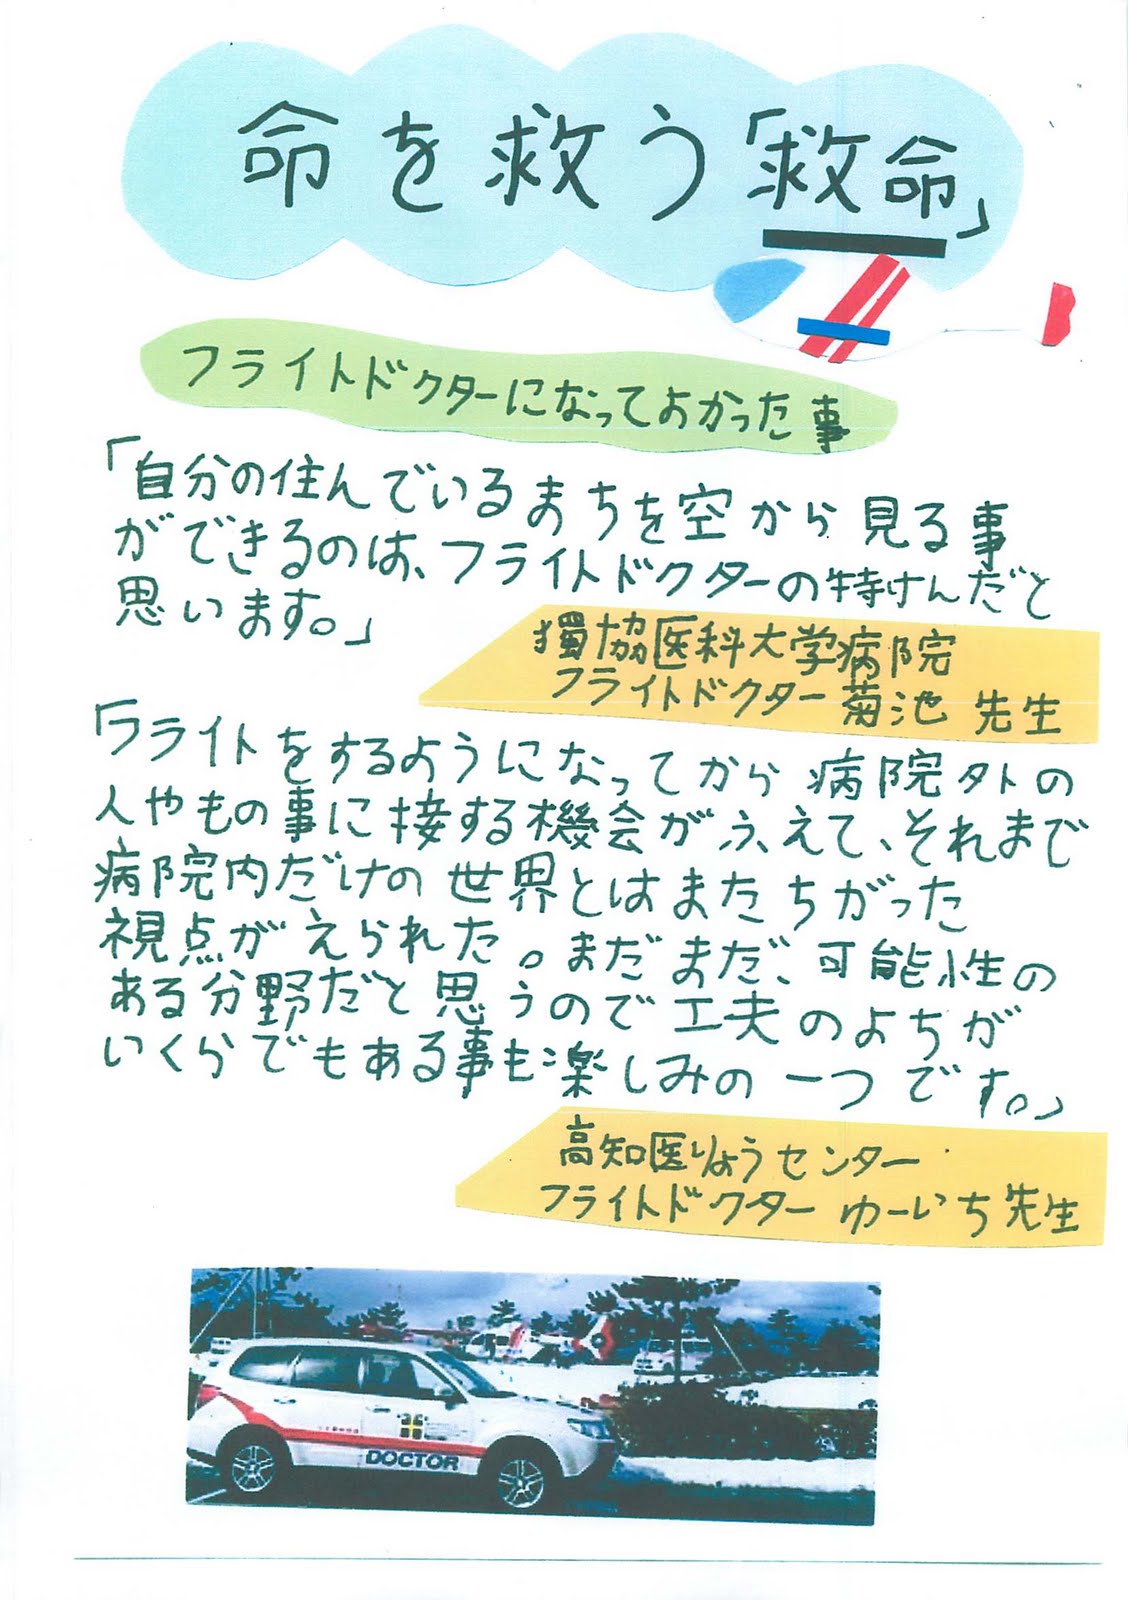 命を救う「救命」
フライトドクターになってよかった事
「自分の住んでいるまちを空から見る事
ができるのは、フライトドクターの特けんだと
思います。」
獨協医科大学病院
フライトドクター菊池 先生
「フライトをするようになってから病院外の
人やもの事に接する機会がふえて、それまで
病院内だけの世界とはまたちがった
視点がえられた。まだまだ、可能性の
ある分野だと思うので工夫のよちが
いくらでもある事も楽しみの一つです。」
高知医りょうセンター
フライトドクター ゆーいち先生
DOCTOR